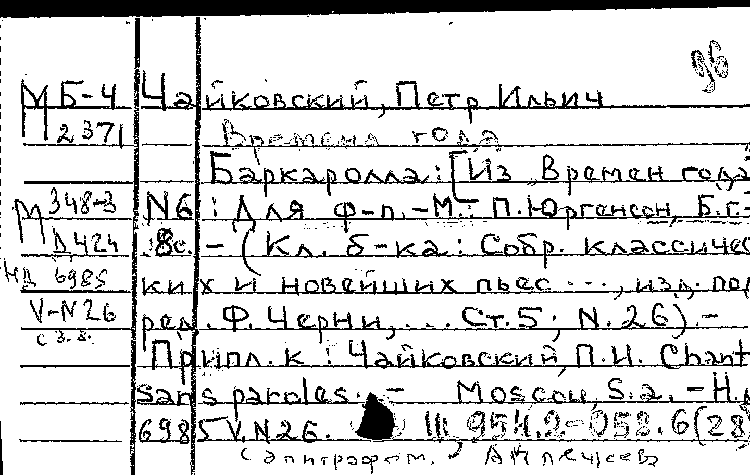 96
М Б-4 Чайковский, Петр Ильич
П 2371 Времена года
Баркаролла: [Из „Времен года
М 348-3 N6: Для ф-п. - М.: П. Юргенсон, Б.г.-
Д424 .8с. - (Кл. б-ка: Собр. классичес
НД 6985 ких и новейших пьес ..., изд. под
V-N26 ред. Ф. Черни, ... Ст. 5; N.26).-
с 3.8.
Припл. к : Чайковский, П.И. Chant
sans paroles. - Moscou, S.a. - Н.
6985 V.N26. III, 954.2-052.6(28)
с эпиграфом.